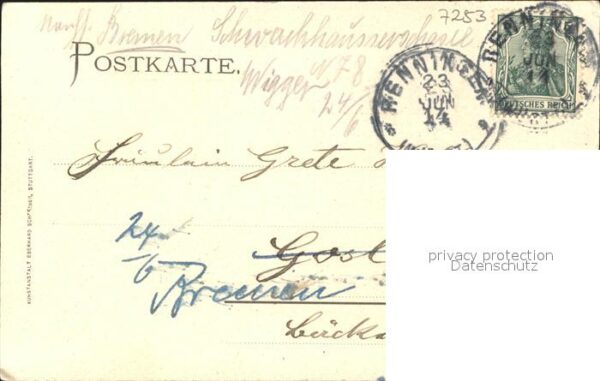 7253
Nachf. Bremen Schwachhauserchaussee
POSTKARTE.
Wigger N 78
24/6
RENNINGEN
23
JUN
14
RENNINGEN
23
JUN
14
DEUTSCHES REICH
Fräulein Grete
24
/6
Gost
Bremen
Bäcks
KUNSTANSTALT EBERHARD SCHREIBER, STUTTGART.
privacy protection
Datenschutz